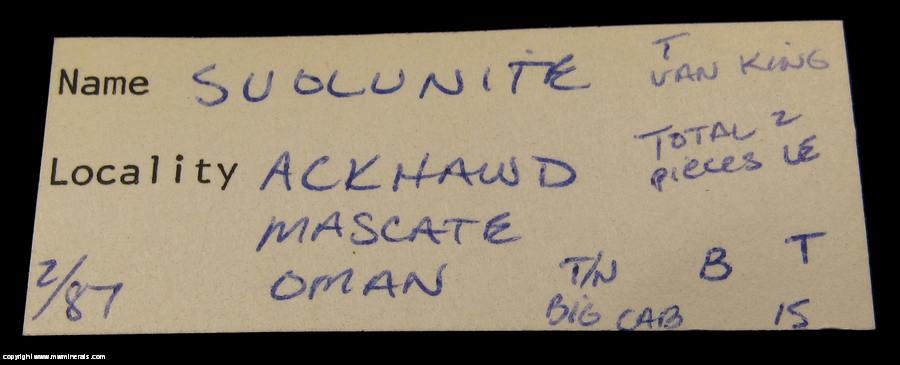 Name SUOLUNITE
T
VAN KING
Locality ACKHAWD
TOTAL 2
PIECES LE
MASCATE
OMAN
2/87
T/N B T
BIG CAB 15
copyright www.mwminerals.com